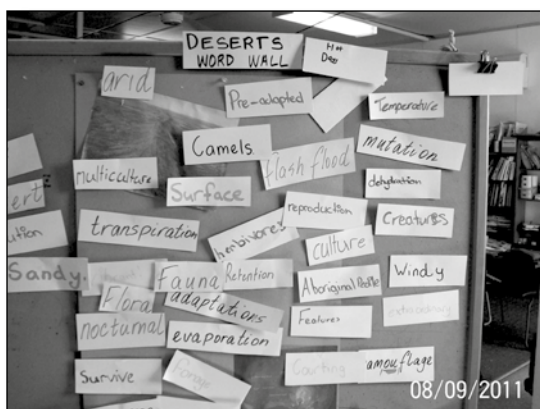 DESERTS
WORD WALL
Hot
arid
Pre-adapted
Temperature
Camels
mutation
flash flood
multiculture
dehydration
Surface
ert
reproduction
Creatures
ution
transpiration
herbivores
culture
Sandy.
Fauna
Retention
Aboriginal People
Windy
Flora
adaptations
nocturnal
Features
extraordinary
evaporation
Courting
amouflage
Survive
forage
08/09/2011